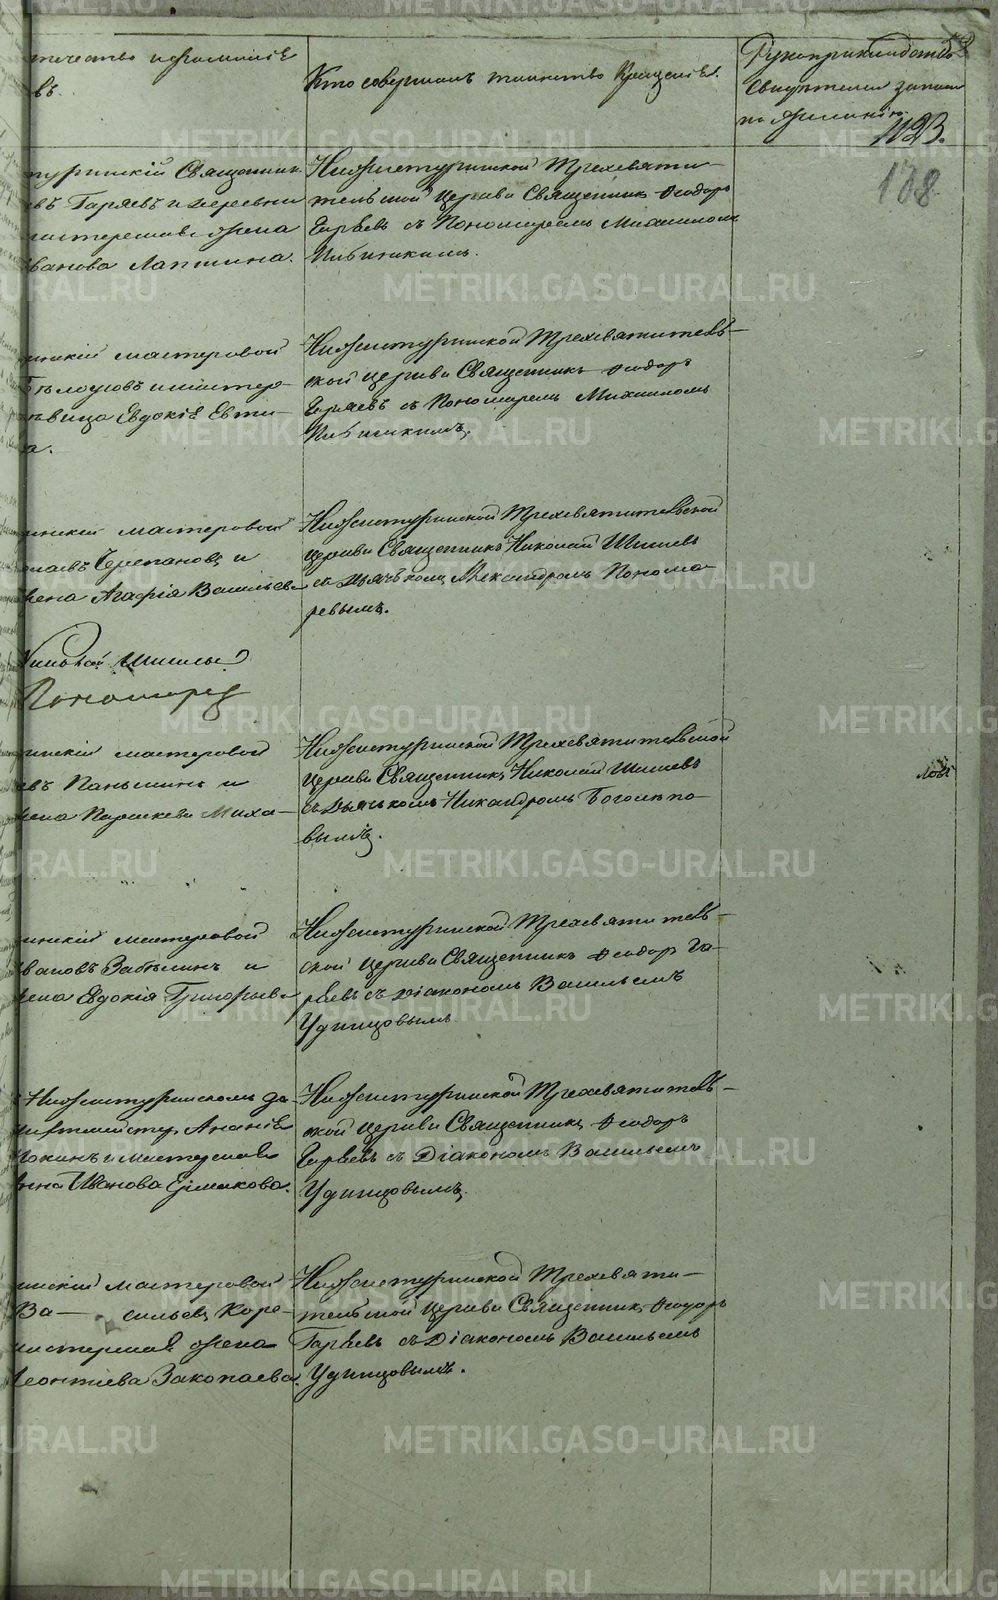 отчество и фамилія
въ.
Кто совершалъ таинство Крещенія.
Рукоприкладство
Свидѣтелей записи
по желанію.
1123.
178
туринскій Священникъ
въ Гаряевъ и деревни
мастерская жена
Иванова Лаптина.
Нижнетуринской Трехсвяти-
тельской Церкви Священникъ Ѳеодоръ
Гаряевъ съ Пономаремъ Михаиломъ
инскій мастеровой
Бѣлоусовъ и мастер-
дѣвица Евдокія Евти-
а.
Нижнетуринской Трехсвятитель-
ской Церкви Священникъ Ѳеодоръ
Гаряевъ съ Пономаремъ Михаиломъ
инскій мастеровой
лаевъ Черепановъ и
жена Агафія Васильева
Нижнетуринской Трехсвятительской
Церкви Священникъ Николай Шишевъ
съ Дьячкомъ Александромъ Понома-
ревымъ.
Николай Шишевъ
Пономаревъ
инскій мастеровой
евъ Паньшинъ и
жена Параскева Миха-
Нижнетуринской Трехсвятительской
Церкви Священникъ Николай Шишевъ
съ Дьячкомъ Никандромъ Боголѣпо-
вымъ.
инскій мастеровой
Ивановъ Забѣлинъ и
жена Евдокія Григорьева
Нижнетуринской Трехсвятитель-
ской Церкви Священникъ Ѳеодоръ Га-
ряевъ съ Діакономъ Васильемъ
Удинцовымъ
Нижнетуринскомъ за-
Ананія
и мастерская
Анна Иванова Ермакова.
Нижнетуринской Трехсвятитель-
ской Церкви Священникъ Ѳеодоръ
Гаряевъ съ Діакономъ Васильемъ
Удинцовымъ.
инскій мастеровой
Ва- сильевъ Коре-
мастерская жена
Леонтіева Закопаева.
Нижнетуринской Трехсвяти-
тельской Церкви Священникъ Ѳеодоръ
Гаряевъ съ Діакономъ Васильемъ
Удинцовымъ.
METRIKI.GASO-URAL.RU